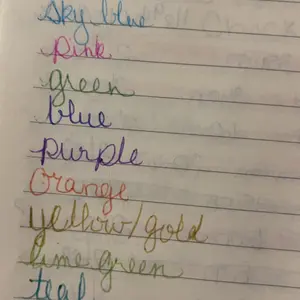 sky blue
pink
green
blue
purple
Orange
yellow/gold
lime green
teal